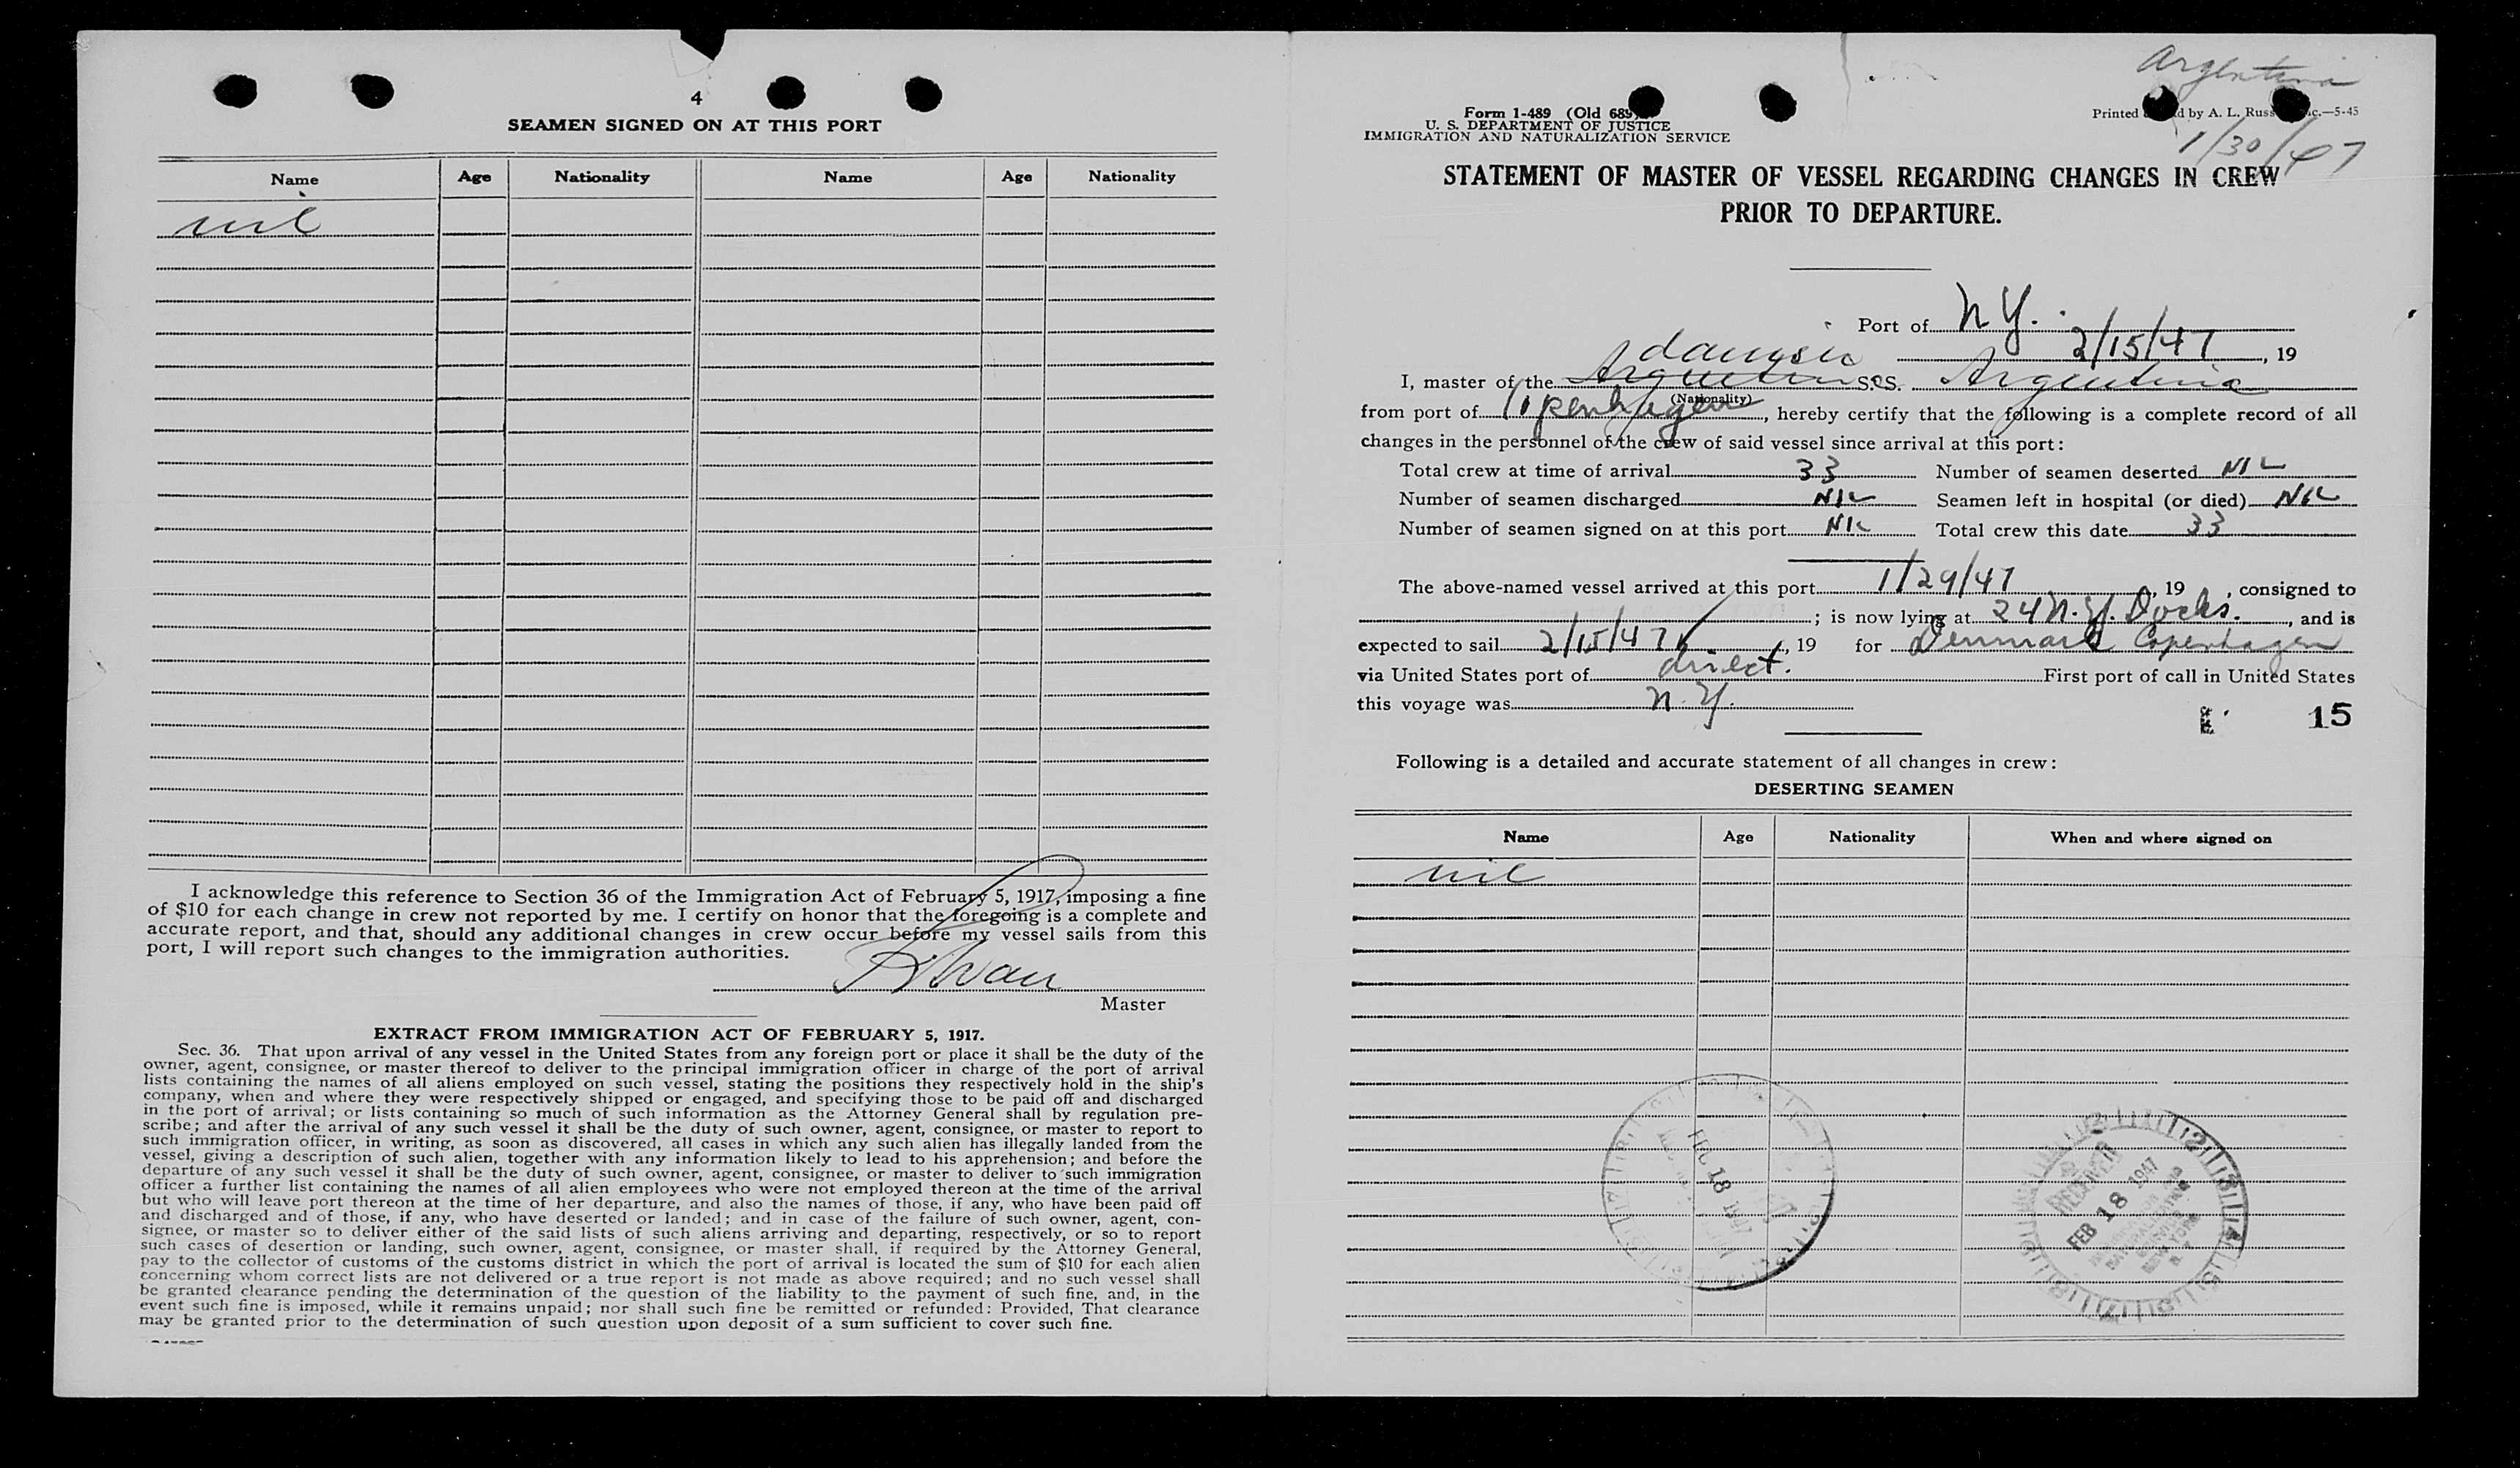 4
SEAMEN SIGNED ON AT THIS PORT
Name Age Nationality Name Age Nationality
nil
I acknowledge this reference to Section 36 of the Immigration Act of February 5, 1917, imposing a fine
of $10 for each change in crew not reported by me. I certify on honor that the foregoing is a complete and
accurate report, and that, should any additional changes in crew occur before my vessel sails from this
port, I will report such changes to the immigration authorities.
Master
EXTRACT FROM IMMIGRATION ACT OF FEBRUARY 5, 1917.
Sec. 36. That upon arrival of any vessel in the United States from any foreign port or place it shall be the duty of the
owner, agent, consignee, or master thereof to deliver to the principal immigration officer in charge of the port of arrival
lists containing the names of all aliens employed on such vessel, stating the positions they respectively hold in the ship's
company, when and where they were respectively shipped or engaged, and specifying those to be paid off and discharged
in the port of arrival; or lists containing so much of such information as the Attorney General shall by regulation pre-
scribe; and after the arrival of any such vessel it shall be the duty of such owner, agent, consignee, or master to report to
such immigration officer, in writing, as soon as discovered, all cases in which any such alien has illegally landed from the
vessel, giving a description of such alien, together with any information likely to lead to his apprehension; and before the
departure of any such vessel it shall be the duty of such owner, agent, consignee, or master to deliver to such immigration
officer a further list containing the names of all alien employees who were not employed thereon at the time of the arrival
but who will leave port thereon at the time of her departure, and also the names of those, if any, who have been paid off
and discharged and of those, if any, who have deserted or landed; and in case of the failure of such owner, agent, con-
signee, or master so to deliver either of the said lists of such aliens arriving and departing, respectively, or so to report
such cases of desertion or landing, such owner, agent, consignee, or master shall, if required by the Attorney General,
pay to the collector of customs of the customs district in which the port of arrival is located the sum of $10 for each alien
concerning whom correct lists are not delivered or a true report is not made as above required; and no such vessel shall
be granted clearance pending the determination of the question of the liability to the payment of such fine, and, in the
event such fine is imposed, while it remains unpaid; nor shall such fine be remitted or refunded: Provided, That clearance
may be granted prior to the determination of such question upon deposit of a sum sufficient to cover such fine.
Argentina
Form 1-489 (Old 689)
Printed by A. L. Russ 5-45
U. S. DEPARTMENT OF JUSTICE
IMMIGRATION AND NATURALIZATION SERVICE
1/30/47
STATEMENT OF MASTER OF VESSEL REGARDING CHANGES IN CREW
PRIOR TO DEPARTURE.
Port of N.Y.
2/15/47, 19
danish
I, master of the Argentina S.S. Argentina
(Nationality)
from port of Copenhagen, hereby certify that the following is a complete record of all
changes in the personnel of the crew of said vessel since arrival at this port:
Total crew at time of arrival 33 Number of seamen deserted NIL
Number of seamen discharged NIL Seamen left in hospital (or died) NIL
Number of seamen signed on at this port NIL Total crew this date 33
The above-named vessel arrived at this port 1/29/47, 19 , consigned to
; is now lying at 24 N.Y. Docks., and is
expected to sail 2/15/47, 19 for Denmark Copenhagen
via United States port of direct. First port of call in United States
this voyage was N.Y.
15
Following is a detailed and accurate statement of all changes in crew:
DESERTING SEAMEN
Name Age Nationality When and where signed on
nil
18 1947
RECEIVED
FEB 18 1947